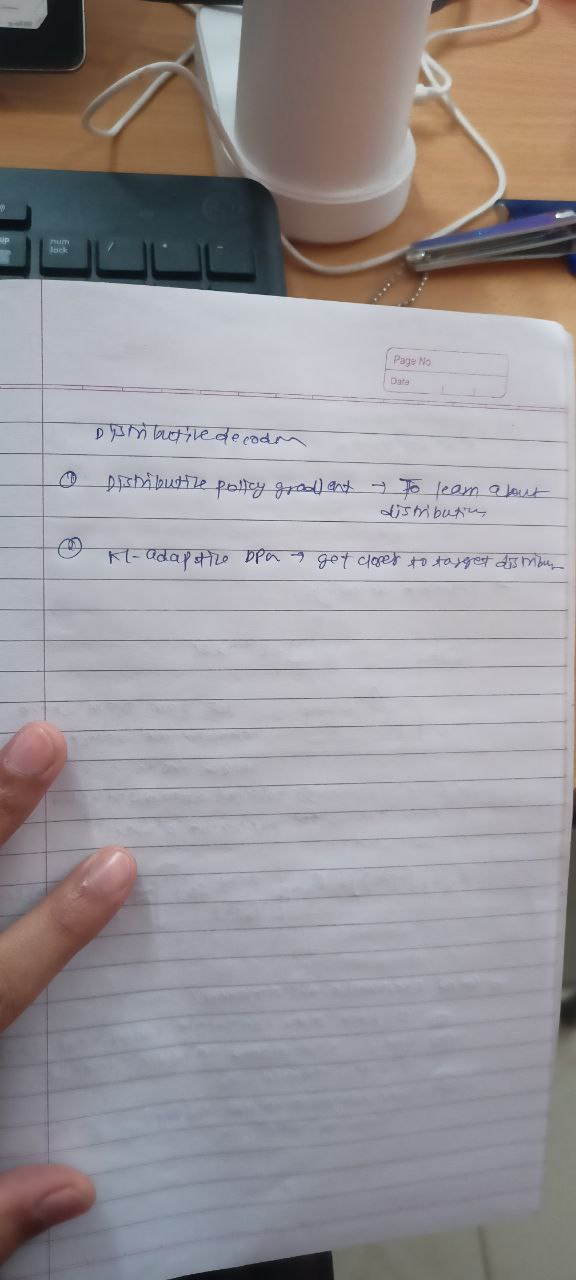 num
lock
/
*
-
Page No.
Date
Distributive decoder
① Distributive policy gradient → To learn about
distribution
② KL-adaptive DPG → get closer to target distribution